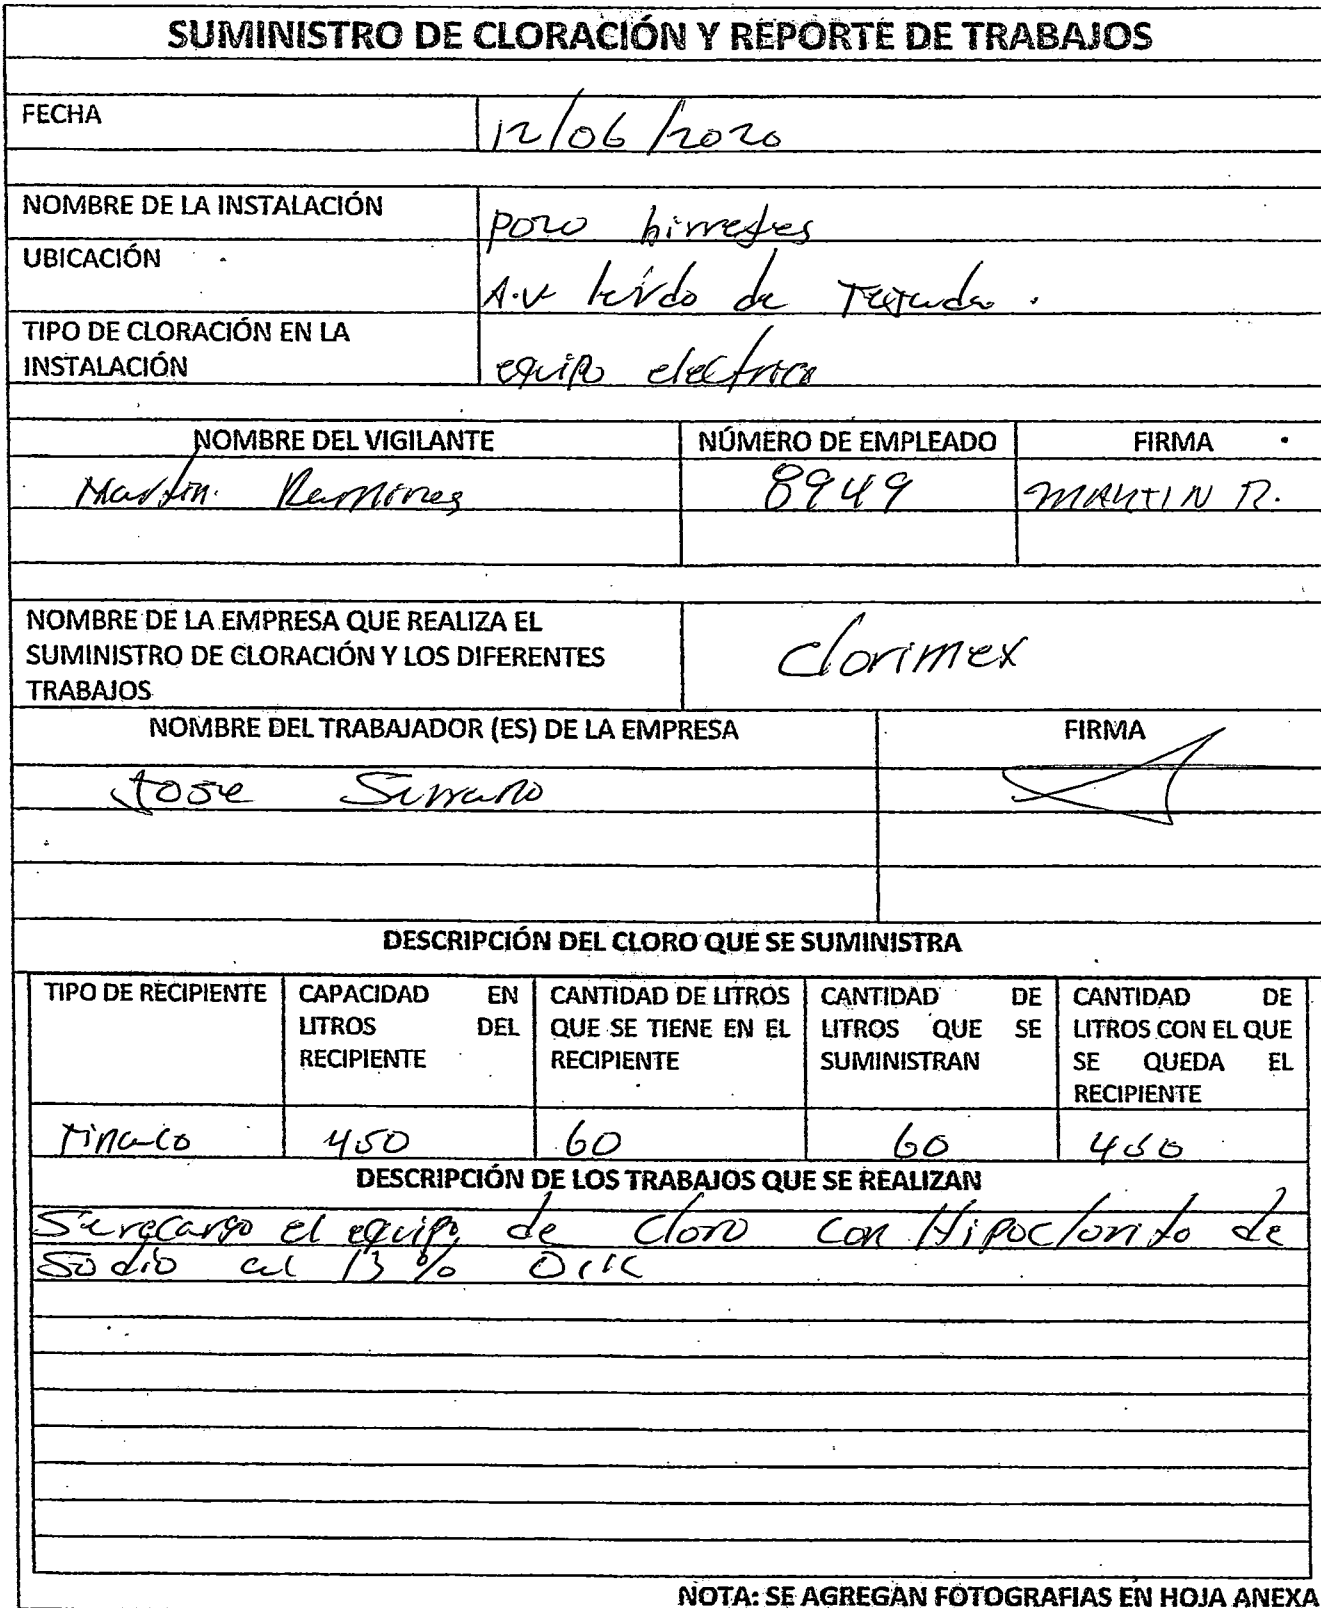 SUMINISTRO DE CLORACIÓN Y REPORTE DE TRABAJOS
FECHA 12/06/2020
NOMBRE DE LA INSTALACIÓN pozo birreyes
UBICACIÓN A.v lerdo de
TIPO DE CLORACIÓN EN LA
INSTALACIÓN equipo electrico
NOMBRE DEL VIGILANTE NÚMERO DE EMPLEADO FIRMA
Martin Ramires 8949 MARTIN R.
NOMBRE DE LA EMPRESA QUE REALIZA EL
SUMINISTRO DE CLORACIÓN Y LOS DIFERENTES
TRABAJOS
Clorimex
NOMBRE DEL TRABAJADOR (ES) DE LA EMPRESA FIRMA
Jose Serrano
DESCRIPCIÓN DEL CLORO QUE SE SUMINISTRA
TIPO DE RECIPIENTE
CAPACIDAD EN
LITROS DEL
RECIPIENTE
CANTIDAD DE LITROS
QUE SE TIENE EN EL
RECIPIENTE
CANTIDAD DE
LITROS QUE SE
SUMINISTRAN
CANTIDAD DE
LITROS CON EL QUE
SE QUEDA EL
RECIPIENTE
Tinaco 450 60 60
DESCRIPCIÓN DE LOS TRABAJOS QUE SE REALIZAN
Se recargo el equipo de Cloro con Hipoclorito de
Sodio al 13 %
NOTA: SE AGREGAN FOTOGRAFIAS EN HOJA ANEXA